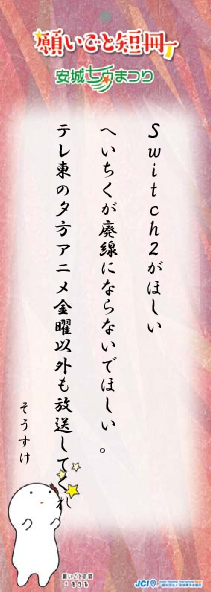 願いごと短冊
安城七夕まつり
Switch2がほしい
へいちくが廃線にならないでほしい。
テレ東の夕方アニメ金曜以外も放送してく
そうすけ
願いごと短冊
JCI